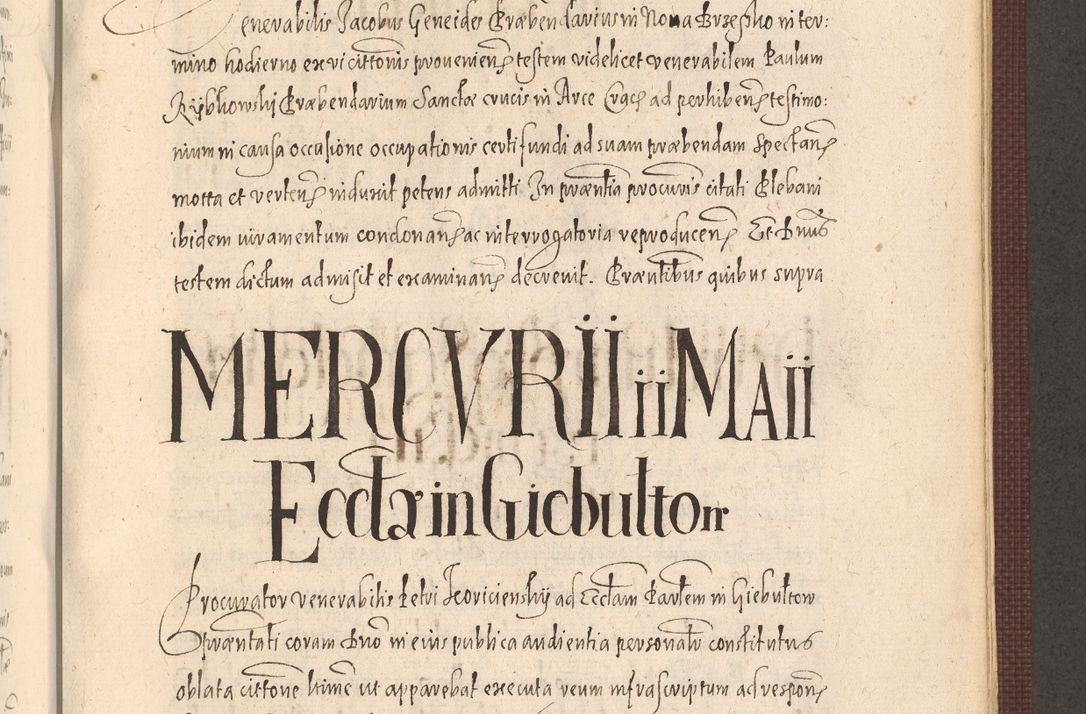 enerabilis Jacobus Geneides Præbendarius in Nova Brzesko in ter:
mino hodierno ex vi citt͠onis provenien͠ testem videlicet venerabilem Paulum
Rÿbkowskj Præbendarium Sanctæ crucis in Arce Crac͠ ad perhiben͠ testimo:
nium in causa occasione occupationis certi fundi ad suam præbendam spectan͠
mota et verten͠ induxit petens admitti In præntia procuris citati Plebani
ibidem iuramentum condonan͠ ac interrogatoria reproducen͠ Et Dnus
testem dictum admisit et examinan͠ decrevit. Præntibus quibus supra
MERCVRII ii MAII
Eccłæ in Giebułtow
Procurator venerabilis Petri Jcoricienskÿ ad Eccłam Parłem in Giebułtow
præntati coram Dno in eius publica audientia personalr constitutus
oblata cittone hinc ut apparebat executa reum infrascriptum ad respon͠